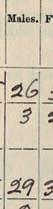 Males. F
26
3
29 3